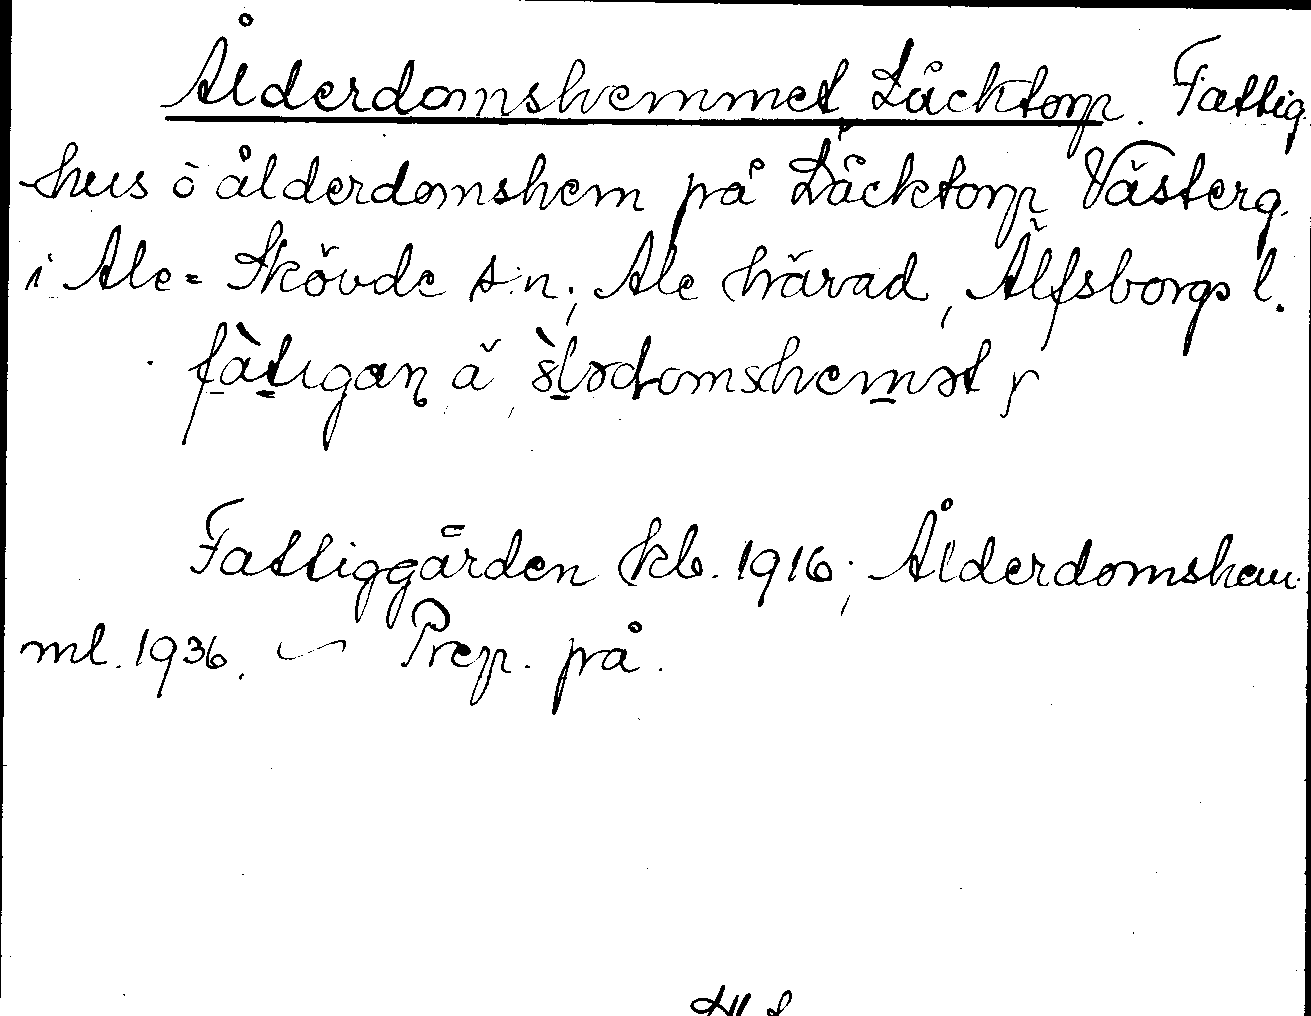 Ålderdomshemmet, Läcktorp. Fattig-
hus o ålderdomshem på Läcktorp Västerg.
i Ale-Skövde s:n, Ale härad, Älfsborgs l.
Fattiggården kb. 1916; Ålderdomshem
ml. 1936. ~ Prep. på.